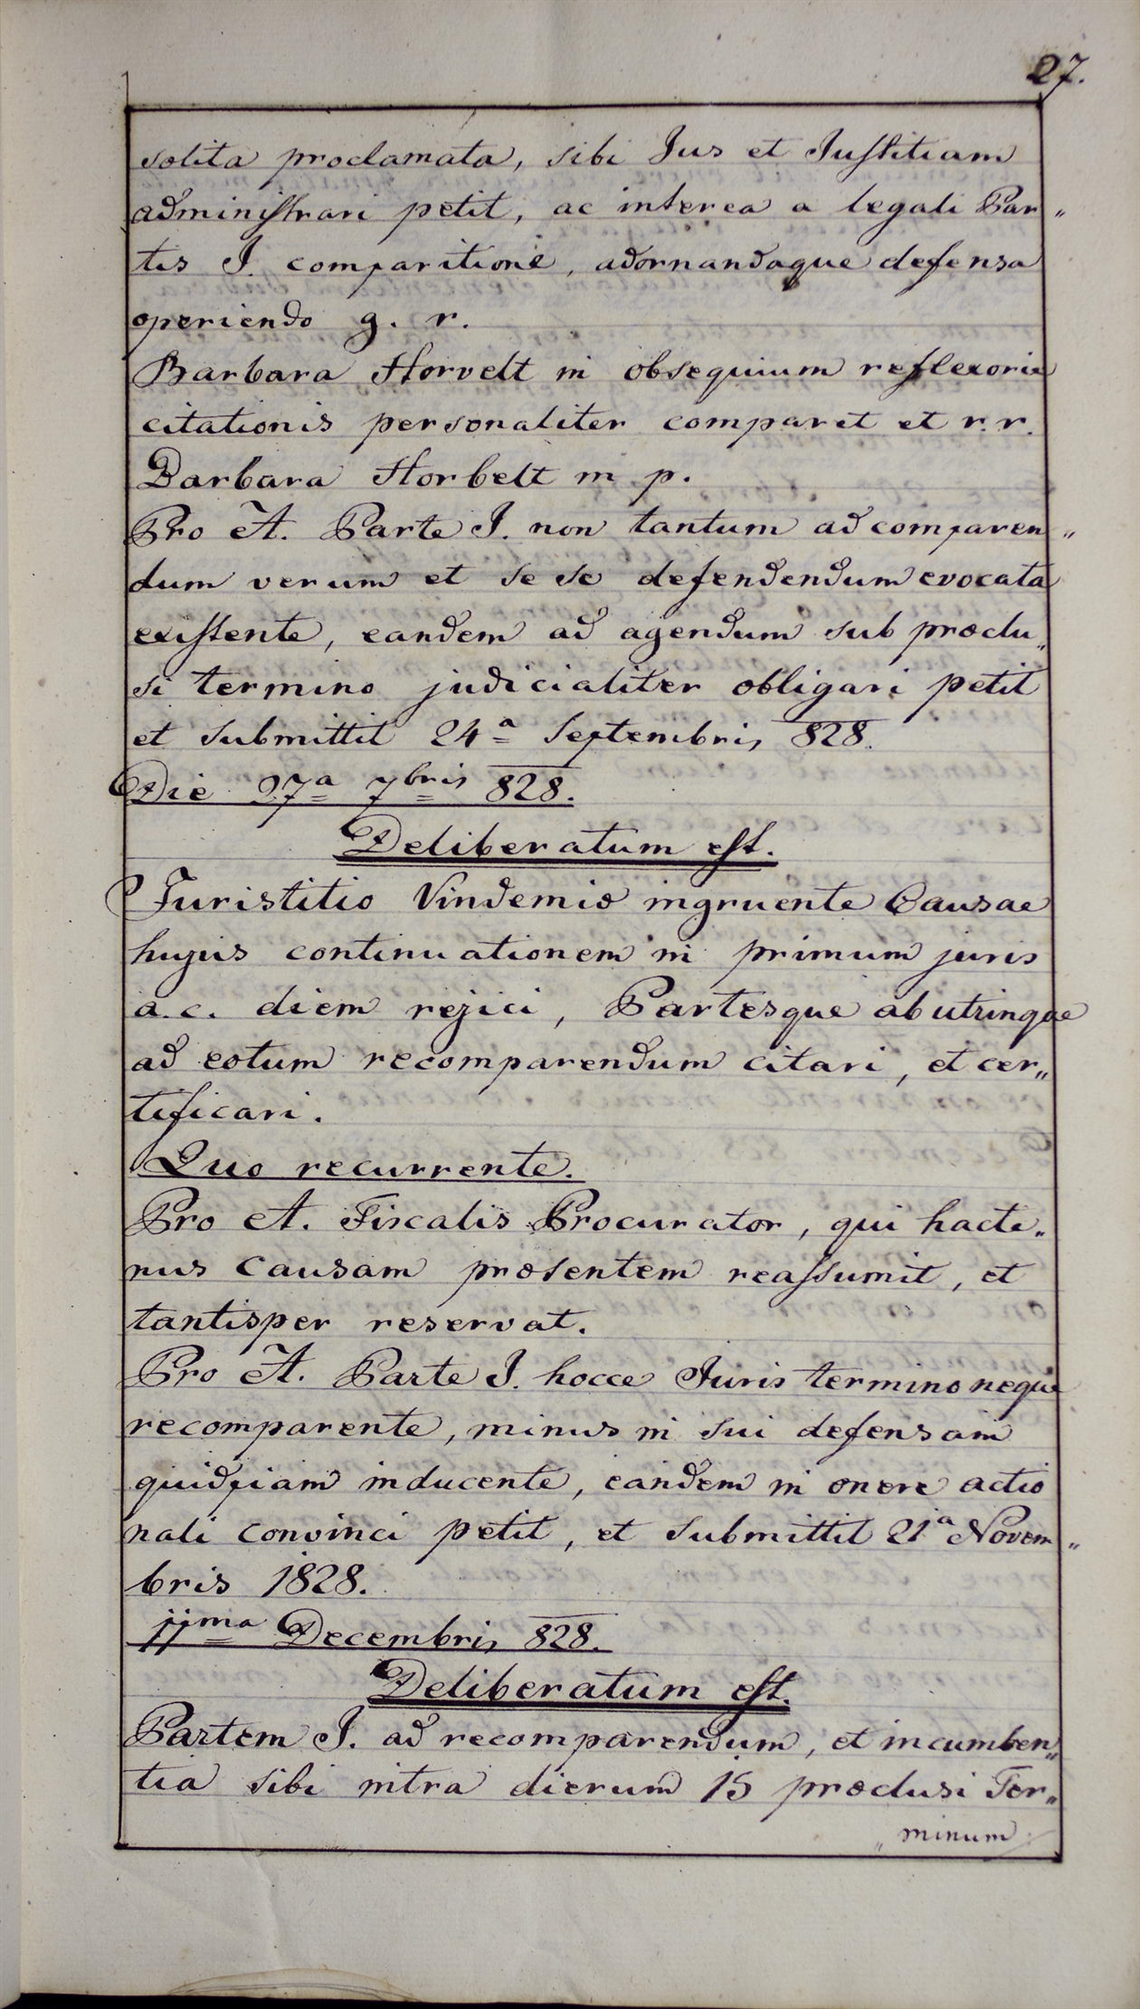 27.
solita proclamata, sibi Jus et Justitiam
administrari petit, ac interea a legali Par„
tis J. comparitione, adornandaque defensa
operiendo g. r.
Barbara Horvelt in obsequium reflexoriæ
citationis personaliter comparet et r. r.
Barbara Horbelt m p.
Pro A. Parte J. non tantum ad comparen„
dum verum et se se defendendum evocata
existente, eandem ad agendum sub præclu„
si termino judicialiter obligari petit
et submittit 24a Septembris 828.
Die 27a 7bris 828.
Deliberatum est.
Juristitio Vindemiæ ingruente Causae
hujus continuationem in primum juris
a. c. diem rejici, Partesque abutrinque
ad eotum recomparendum citari, et cer„
tificari.
Quo recurrente.
Pro A. Fiscalis Procurator, qui hacte„
nus Causam præsentem reassumit, et
tantisper reservat.
Pro A. Parte J. hocce Juris termino neque
recomparente, minus in sui defensam
quidpiam inducente, eandem in onere actio
nali convinci petit, et submittit 21a Novem„
bris 1828.
11ma Decembris 828.
Deliberatum est.
Partem J. ad recomparendum, et incumben„
tia sibi intra dierum 15 præclusi Ter„
„minum